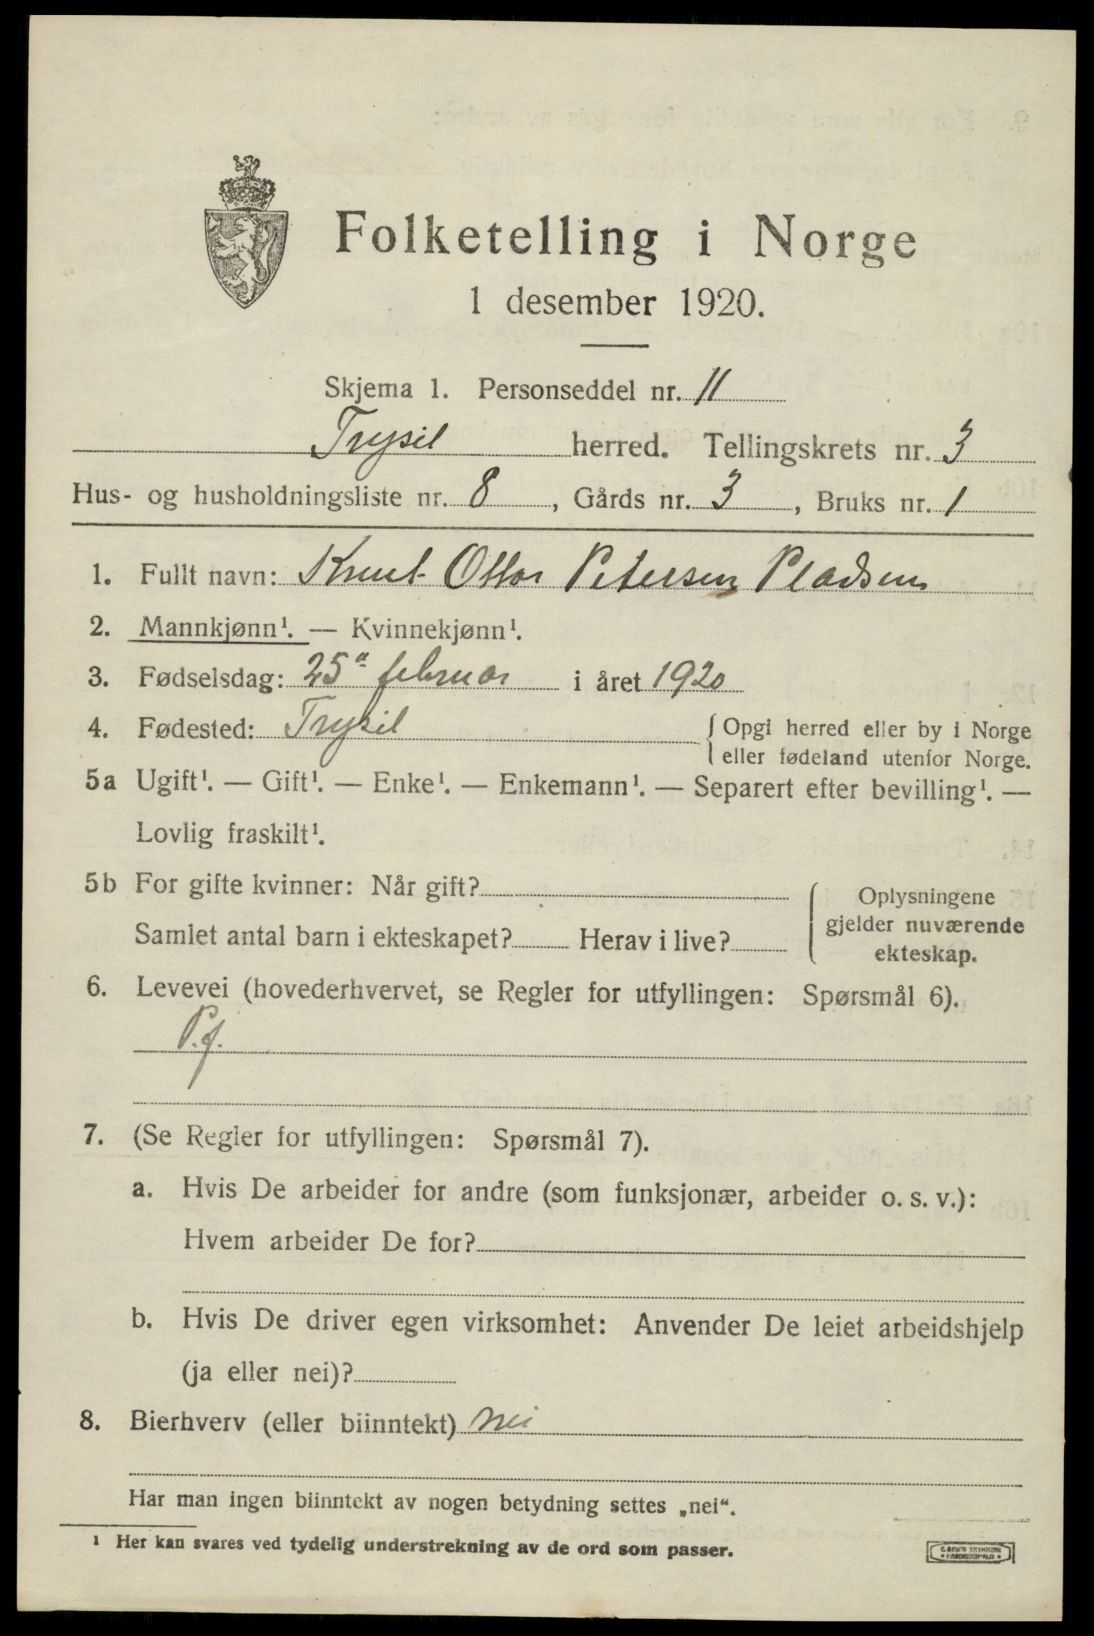 Folketelling i Norge
1 desember 1920.
Skjema 1. Personseddel nr. 11
Trysil herred. Tellingskrets nr. 3
Hus- og husholdningsliste nr. 8, Gårds nr. 3, Bruks nr. 1
1. Fullt navn: Knut Ottar Petersen Pladsen
2. Mannkjønn¹. — Kvinnekjønn¹.
3. Fødselsdag: 25ᵈ februar i året 1920
4. Fødested: Trysil { Opgi herred eller by i Norge
eller fødeland utenfor Norge.
5a Ugift¹. — Gift¹. — Enke¹. — Enkemann¹. — Separert efter bevilling¹. —
Lovlig fraskilt¹.
5b For gifte kvinner: Når gift? { Oplysningene
gjelder nuværende
ekteskap.
Samlet antal barn i ekteskapet? Herav i live?
6. Levevei (hovederhvervet, se Regler for utfyllingen: Spørsmål 6).
P.f.
7. (Se Regler for utfyllingen: Spørsmål 7).
a. Hvis De arbeider for andre (som funksjonær, arbeider o. s. v.):
Hvem arbeider De for?
b. Hvis De driver egen virksomhet: Anvender De leiet arbeidshjelp
(ja eller nei)?
8. Bierhverv (eller biinntekt) nei
Har man ingen biinntekt av nogen betydning settes „nei“.
¹ Her kan svares ved tydelig understrekning av de ord som passer.